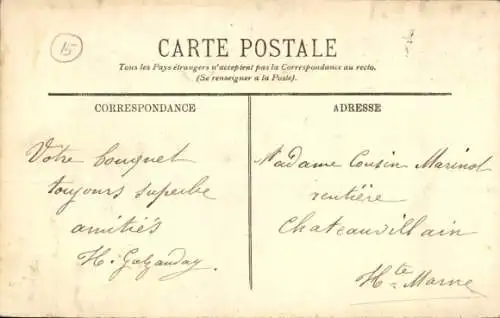 15
CARTE POSTALE
Tous les Pays étrangers n'acceptent pas la Correspondance au recto.
(Se renseigner a la Poste).
CORRESPONDANCE
Votre bouquet
toujours superbe
amitiés
ADRESSE
Madame Cousin Marinot
rentière
Chateauvillain
Hte Marne